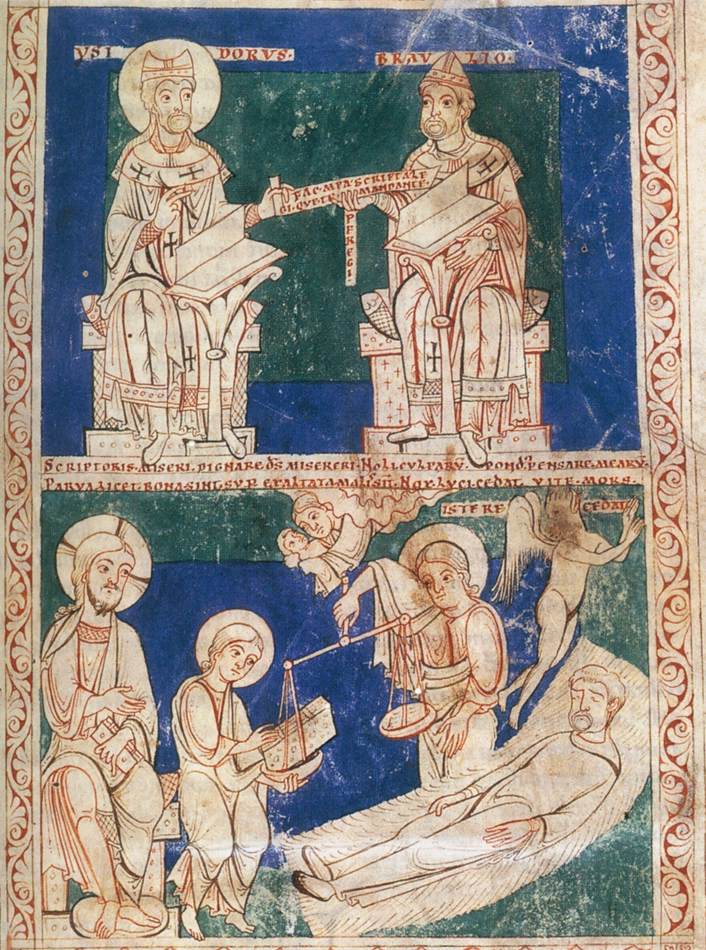 YSI DORUS·
BRAU LIO·
FAC·MEA·SCRIPTA·LE
GI·QUE·TR MANDANTE·
PEREGI·
SCRIPTORIS·MISERI·DIGNARE DS MISERERI·NOLI CULPARU PONDUS PENSARE MEARU·
PARUA LICET BONA SINT SUPEREXALTATA MALIS SINT NOX LUCI CEDAT VITE·MORS·
ISTE RE CEDAT